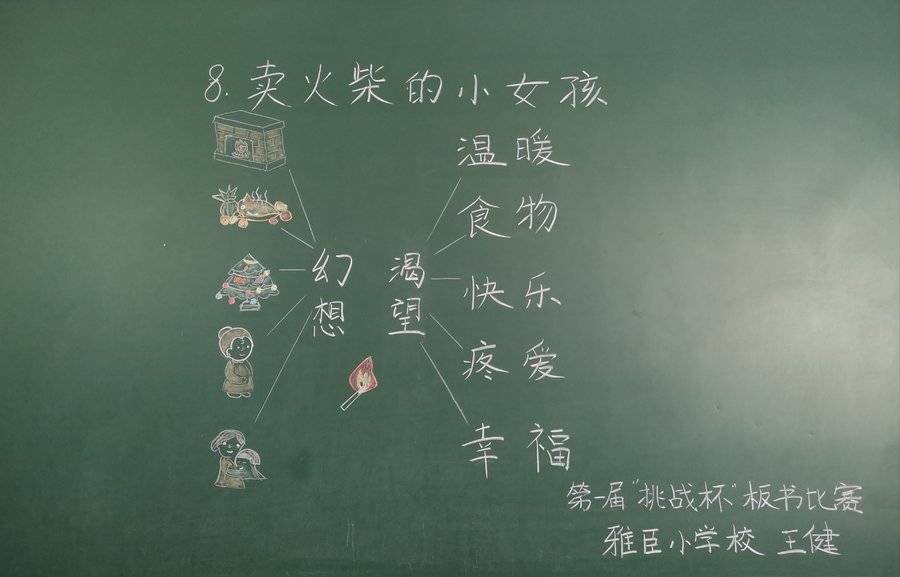 8. 卖火柴的小女孩
温暖
食物
幻想
渴望
快乐
疼爱
幸福
第一届"挑战杯"板书比赛
雅臣小学校 王健